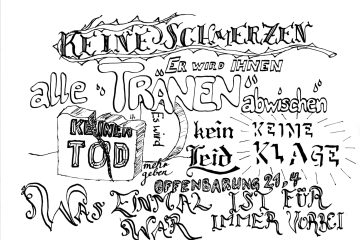 KEINE SCHMERZEN
ER WIRD IHNEN
alle "TRÄNEN" abwischen"
Es wird
KEINEN
TOD
mehr
geben
kein
Leid
KEINE
KLAGE
OFFENBARUNG 21,4
"WAS EINMAL IST FÜR
WAR IMMER VORBEI